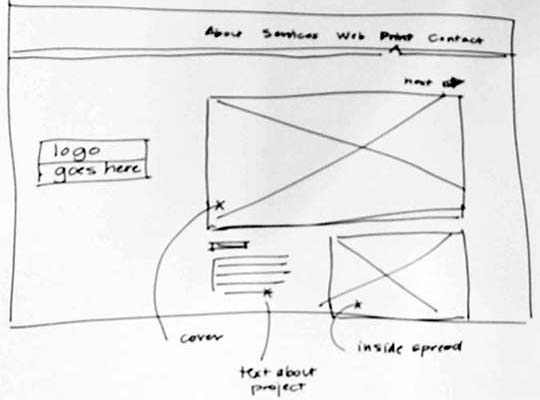 About Services Web Print Contact
next
logo
goes here
cover
text about
project
inside spread